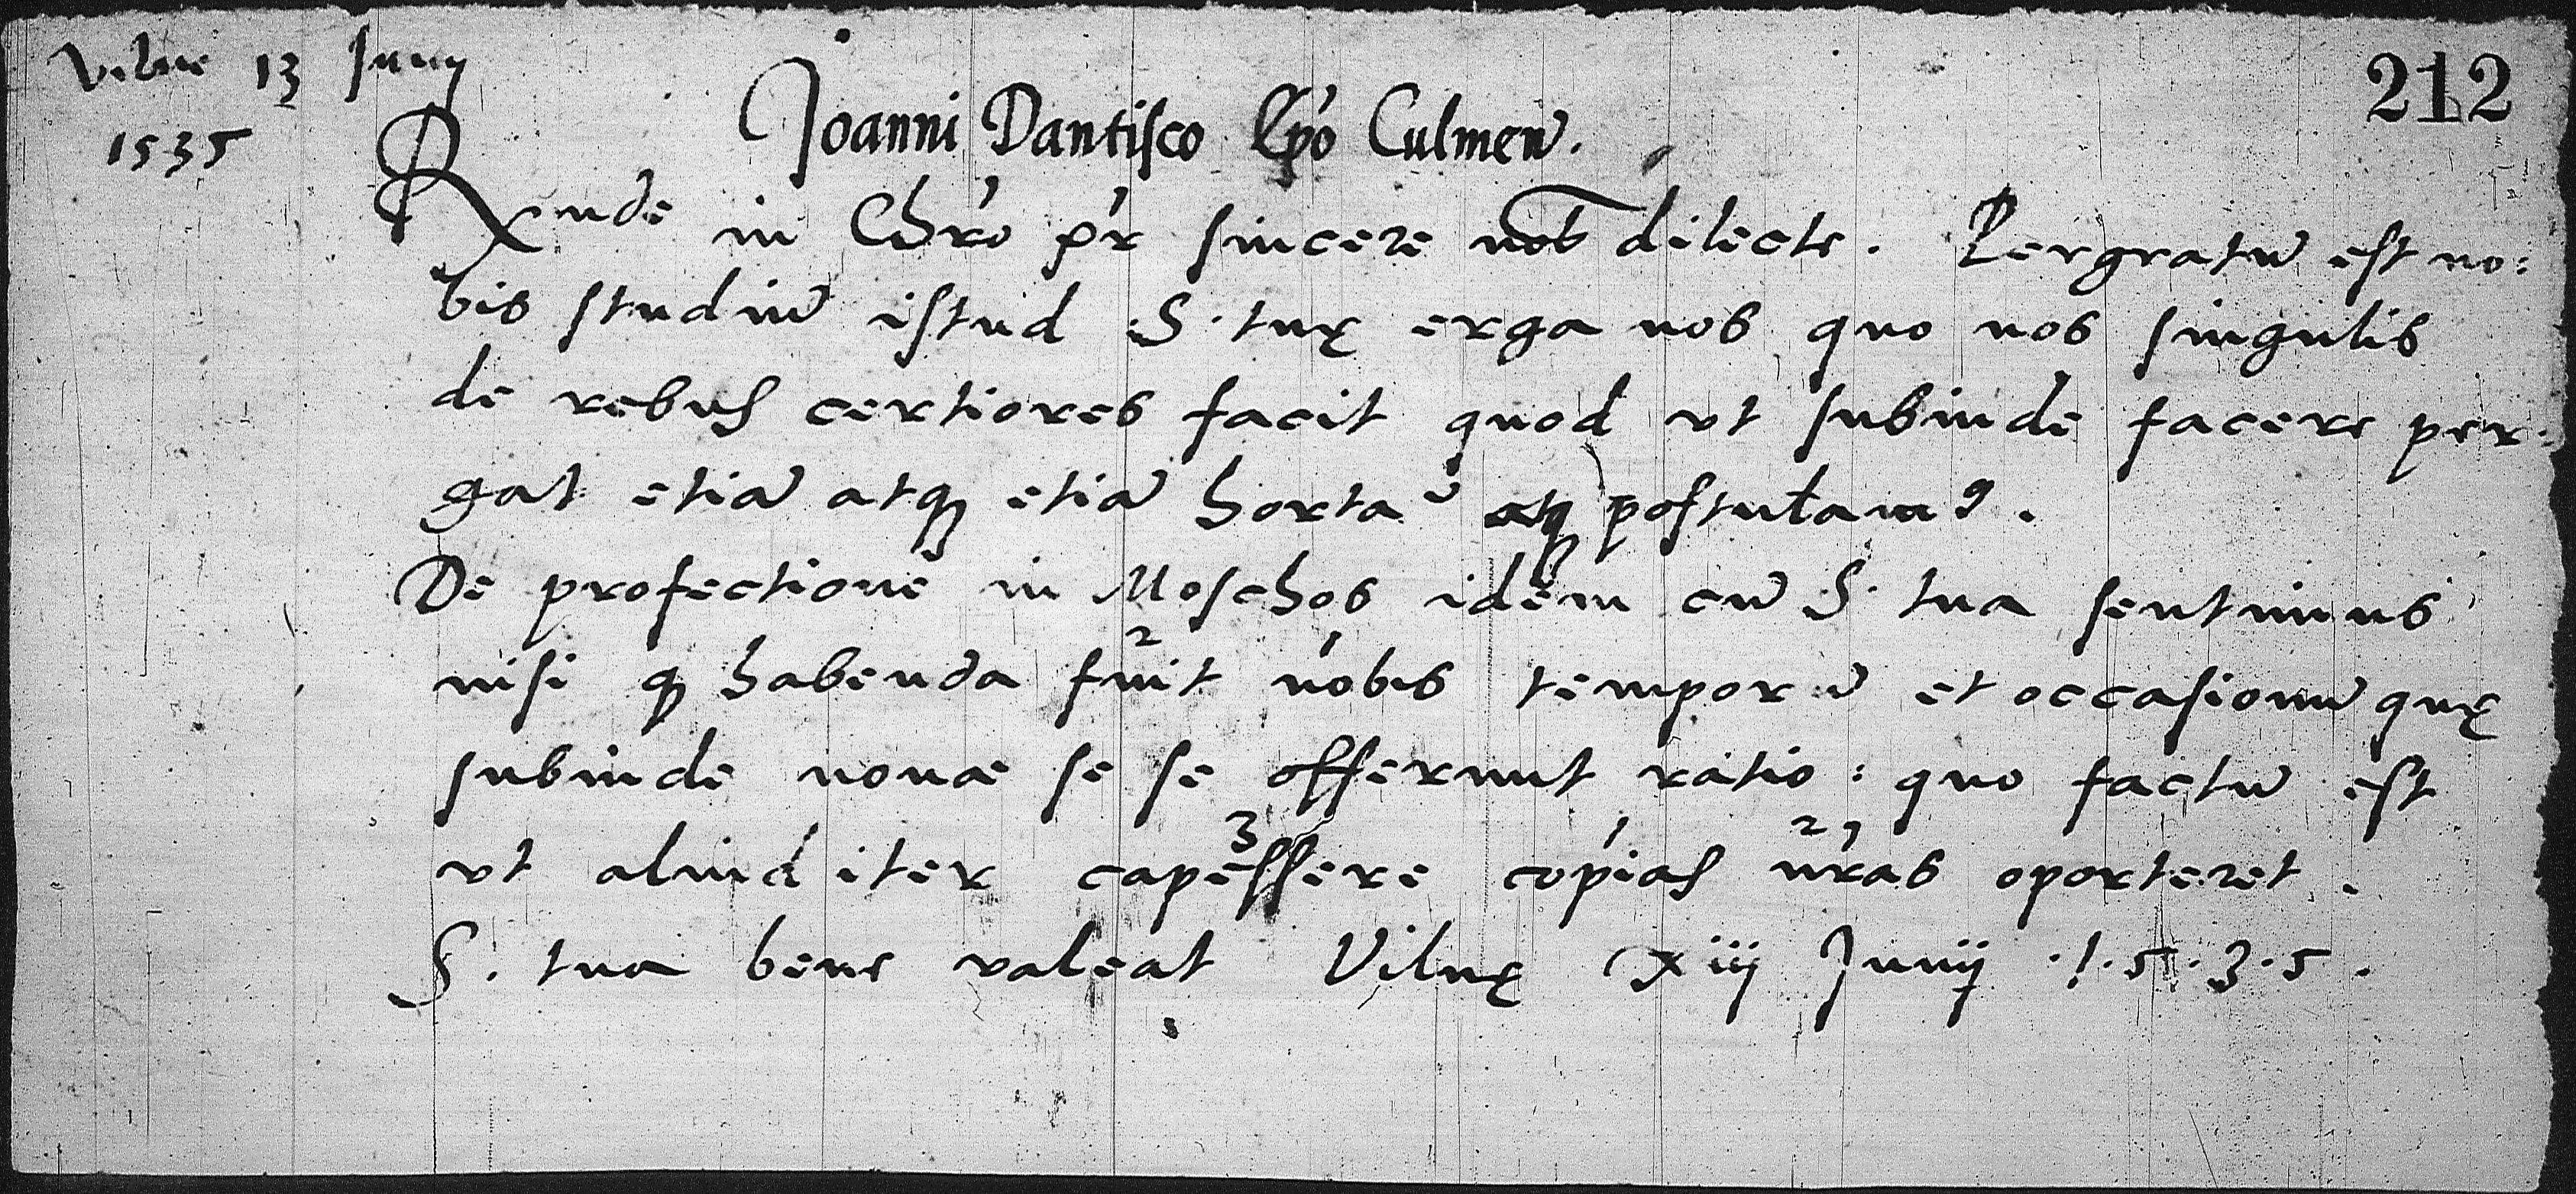 Vilne 13 Junij
212
1535
Joanni Dantisco Ep̃o Culmeñ.
Rx̃nde in Chr̃o pr̃ sincere nob̃ dilecte. Pergratũ est no:
bis studiũ istud S. tuę erga nos quo nos singulis
de rebus certiores facit quod vt subinde facere per:
gat etiã atqꝫ etiã hortam̃ atqꝫ postulamꝰ.
De profectione in Moschos idem cũ S. tua sentimus
nisi qꝫ habenda fuit nobis temporũ et occasionũ quę
subinde nouæ se se offerunt ratio: quo factũ est
vt aliud iter capessere copias nr̃as oporteret.
S. tua bene valeat Vilnę xiij Junij .1.5.3.5.